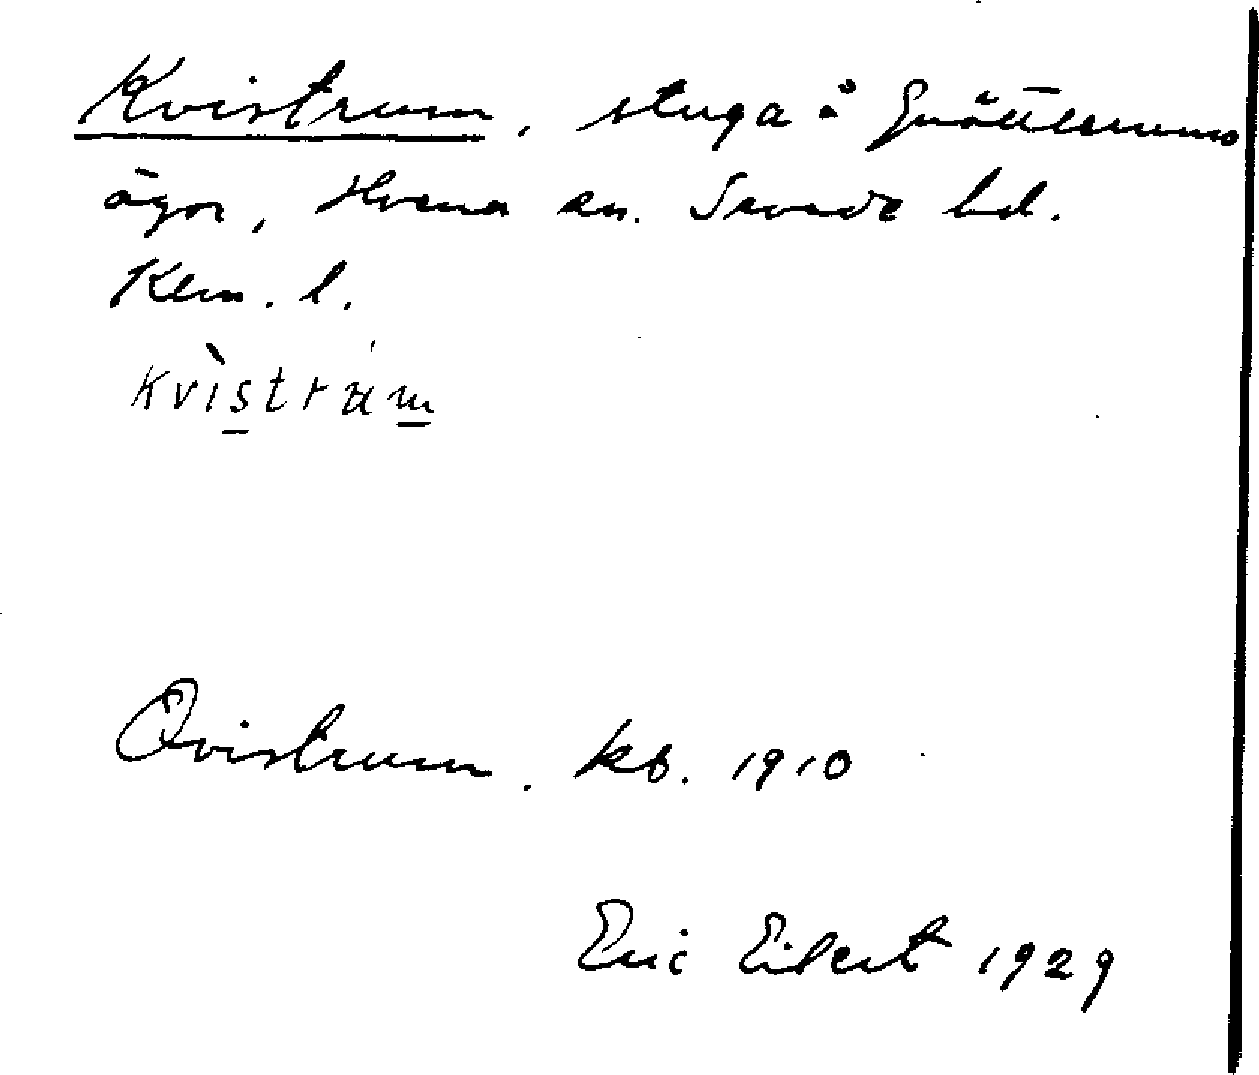 Kvistrum, stuga å Gnöttlerums
ägor, Hvena sn. Sevede hd.
Kalm. l.
kvìstrúm
Qvistrum. kb. 1910
Eric Eilert 1929